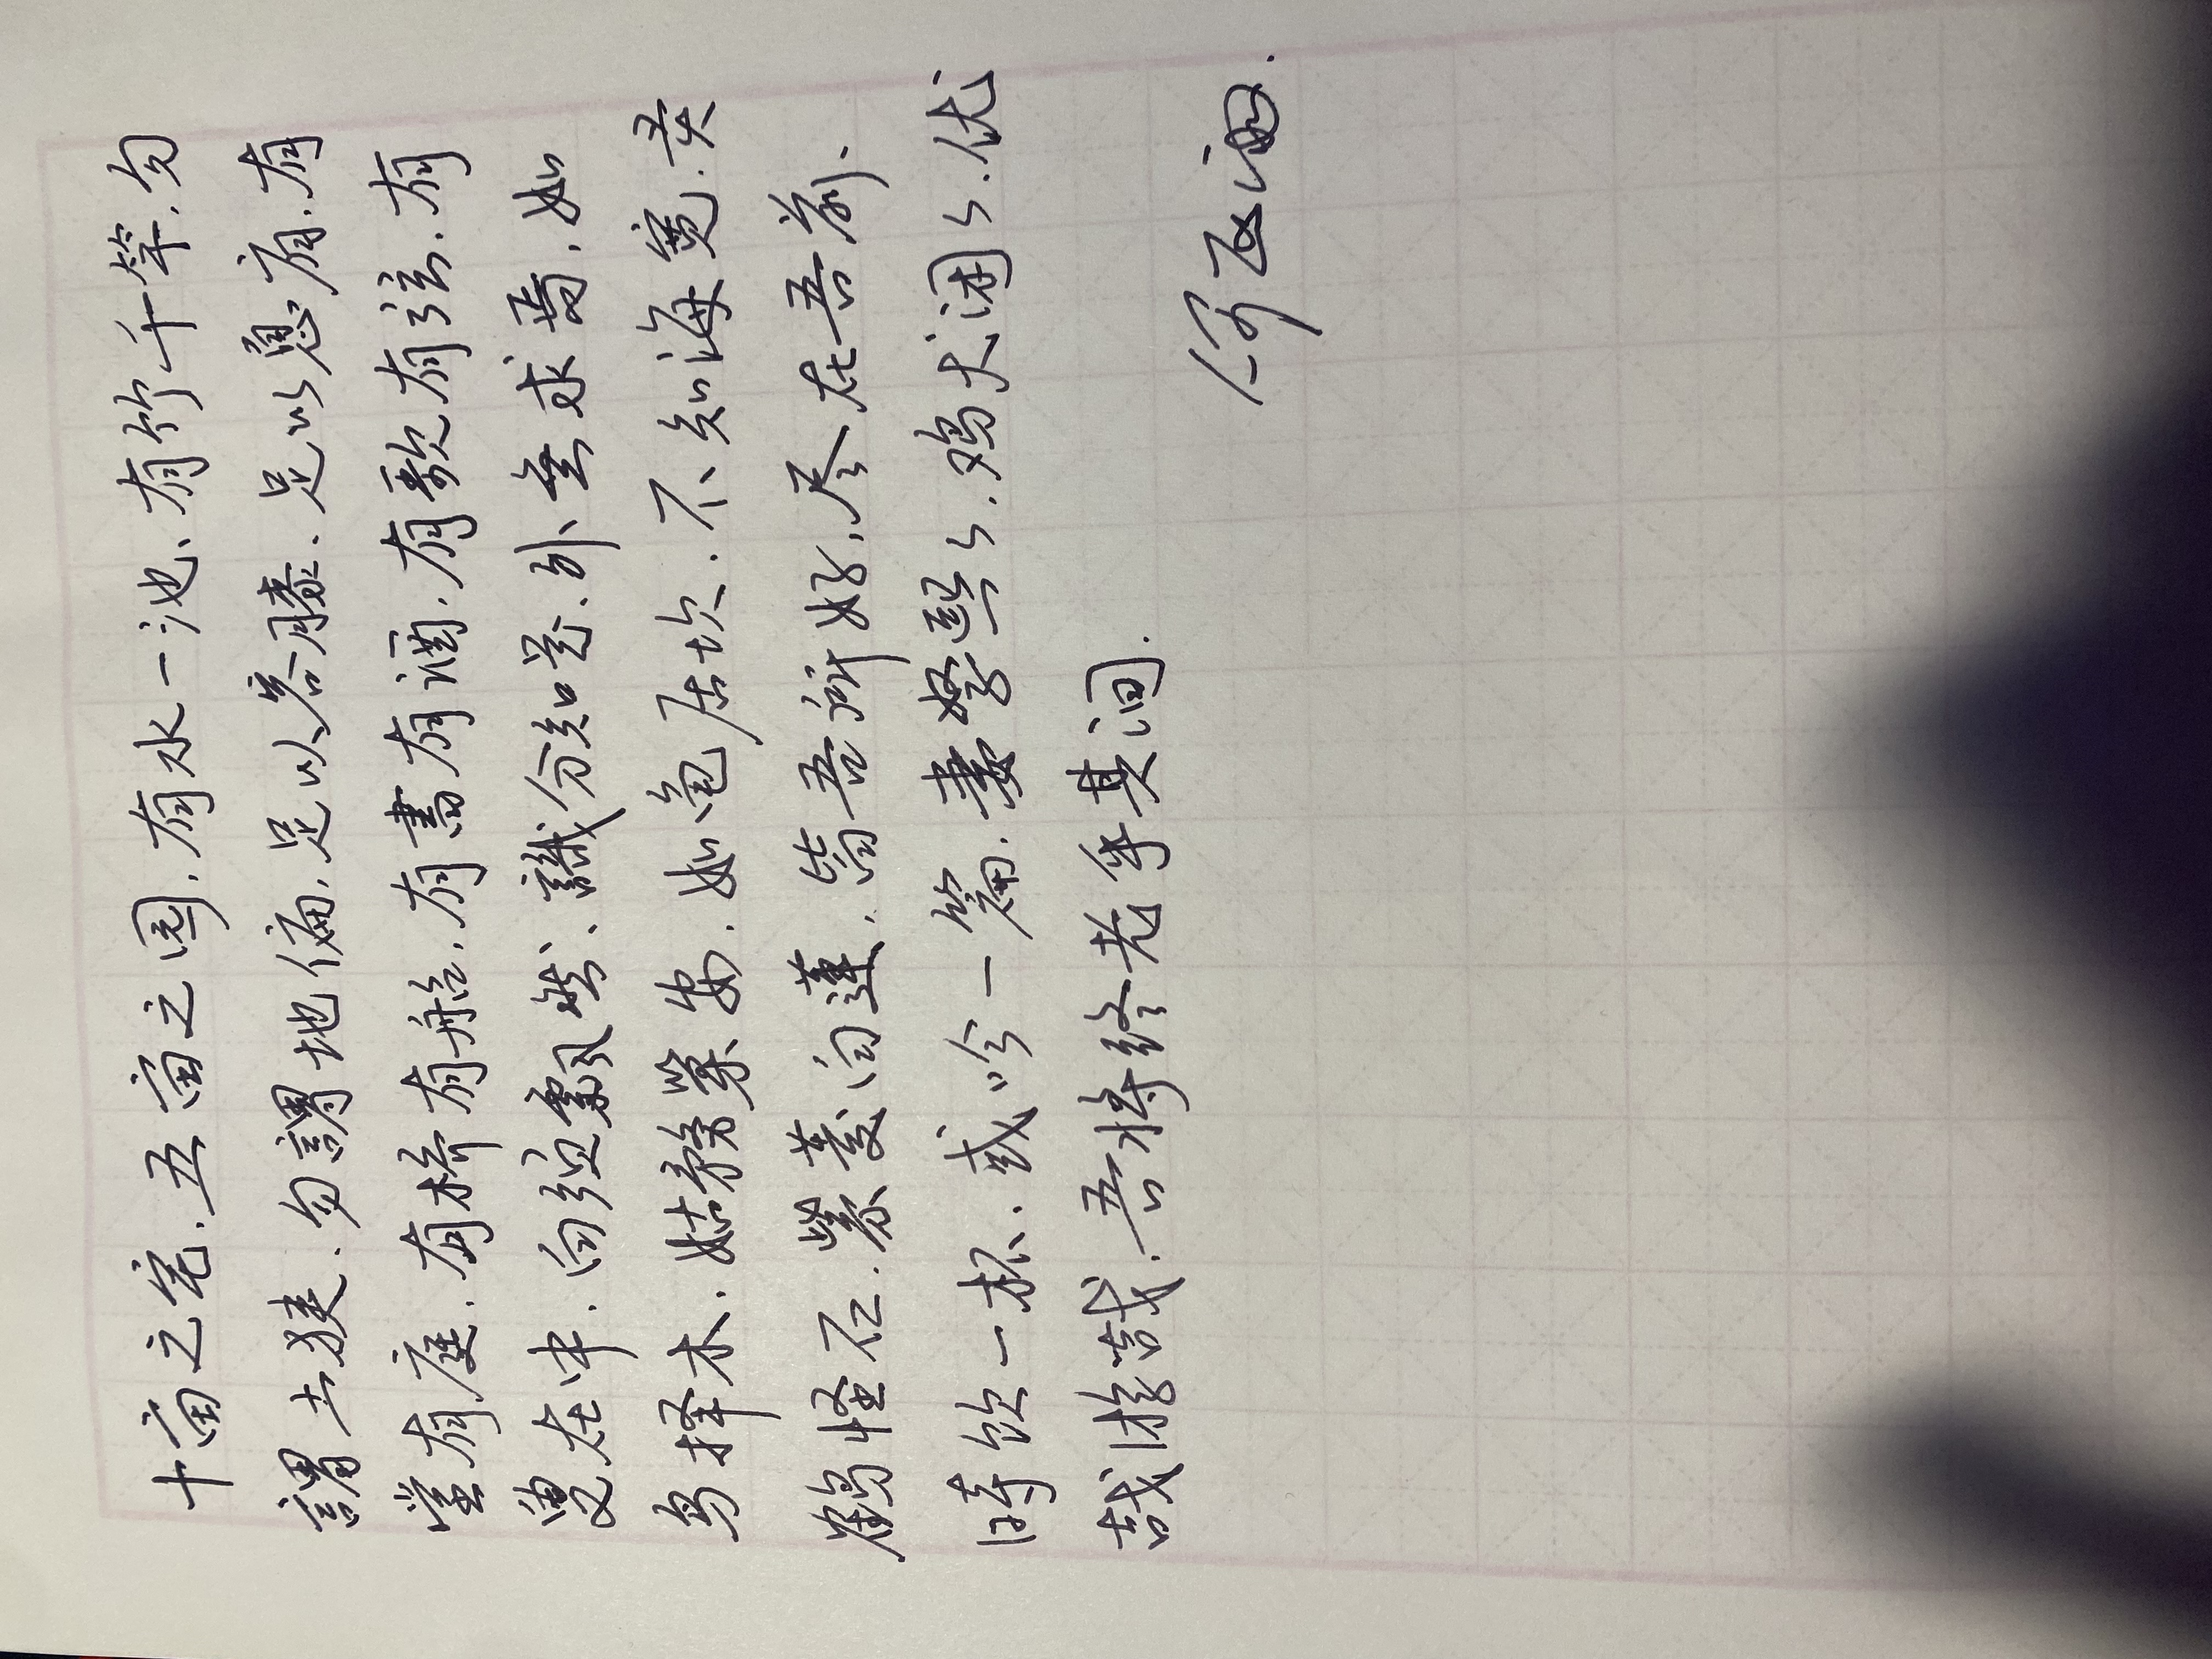 十亩之宅.五亩之园,有水一池、有竹千竿.勿
謂土狭.勿謂地偏,足以容膝、足以息肩.有
堂有庭.有桥有船,有書有酒,有歌有弦.有
叟在中.白须飘然、識分知足、外無求焉,如
鸟择木.姑務巢安.如龟居坎.不知海宽.灵
鹤怪石.紫菱白蓮.皆吾所好,尽在吾前、
時饮一杯.或吟一篇.妻孥熙々.鸡犬闲々.优
哉游哉.吾将终老乎其间.